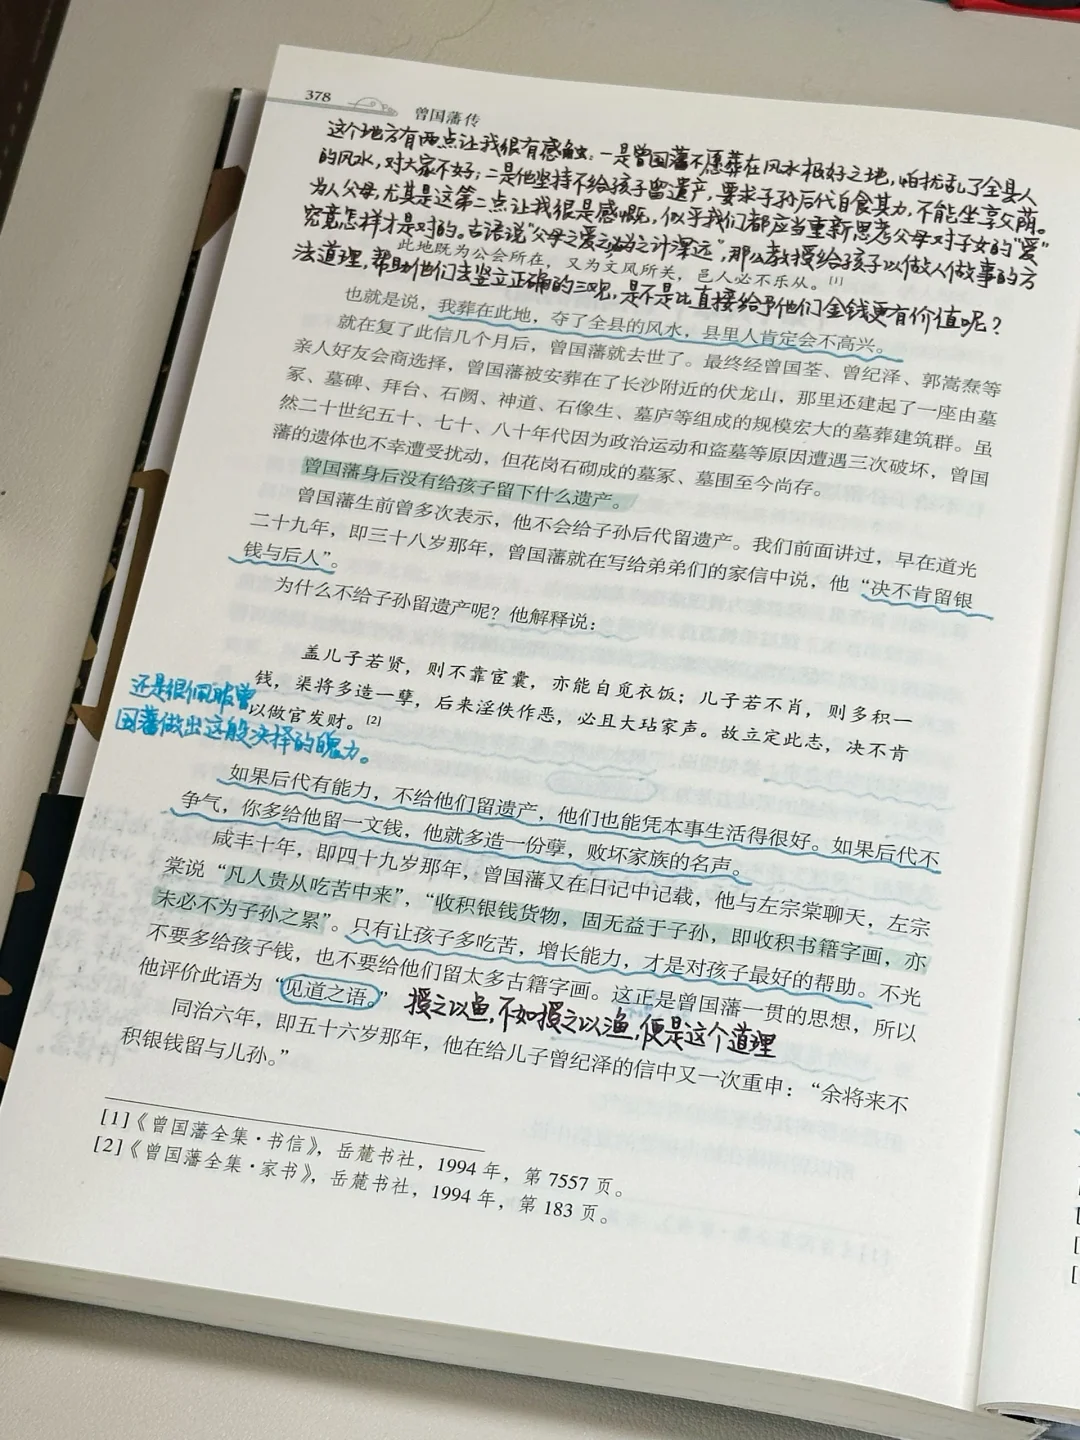 378
曾国藩传
这个地方有两点让我很有感触：一是曾国藩不愿葬在风水极好之地，怕扰乱了全县人
的风水，对大家不好；二是他坚持不给孩子留遗产，要求子孙后代自食其力，不能坐享父荫。
为人父母，尤其是这第二点让我很是感慨，似乎我们都应当重新思考父母对子女的"爱"
究竟怎样才是对的。古语说"父母之爱之为之计深远"，那么教授给孩子以做人做事的方
此地既为公会所在，又为文风所关，邑人必不乐从。[1]
法道理，帮助他们去竖立正确的三观，是不是比直接给予他们金钱更有价值呢？
也就是说，我葬在此地，夺了全县的风水，县里人肯定会不高兴。
就在复了此信几个月后，曾国藩就去世了。最终经曾国荃、曾纪泽、郭嵩焘等
亲人好友会商选择，曾国藩被安葬在了长沙附近的伏龙山，那里还建起了一座由墓
冢、墓碑、拜台、石阙、神道、石像生、墓庐等组成的规模宏大的墓葬建筑群。虽
然二十世纪五十、七十、八十年代因为政治运动和盗墓等原因遭遇三次破坏，曾国
藩的遗体也不幸遭受扰动，但花岗石砌成的墓冢、墓围至今尚存。
曾国藩身后没有给孩子留下什么遗产。
曾国藩生前曾多次表示，他不会给子孙后代留遗产。我们前面讲过，早在道光
二十九年，即三十八岁那年，曾国藩就在写给弟弟们的家信中说，他“决不肯留银
钱与后人”。
为什么不给子孙留遗产呢？他解释说：
盖儿子若贤，则不靠宦囊，亦能自觅衣饭；儿子若不肖，则多积一
钱，渠将多造一孽，后来淫佚作恶，必且大玷家声。故立定此志，决不肯
以做官发财。[2]
还是很佩服曾
国藩做出这般决择的魄力。
如果后代有能力，不给他们留遗产，他们也能凭本事生活得很好。如果后代不
争气，你多给他留一文钱，他就多造一份孽，败坏家族的名声。
咸丰十年，即四十九岁那年，曾国藩又在日记中记载，他与左宗棠聊天，左宗
棠说“凡人贵从吃苦中来”，“收积银钱货物，固无益于子孙，即收积书籍字画，亦
未必不为子孙之累”。只有让孩子多吃苦，增长能力，才是对孩子最好的帮助。不光
不要多给孩子钱，也不要给他们留太多古籍字画。这正是曾国藩一贯的思想，所以
他评价此语为“见道之语。”
授之以鱼，不如授之以渔，便是这个道理
同治六年，即五十六岁那年，他在给儿子曾纪泽的信中又一次重申：“余将来不
积银钱留与儿孙。”
[1]《曾国藩全集·书信》，岳麓书社，1994年，第7557页。
[2]《曾国藩全集·家书》，岳麓书社，1994年，第183页。